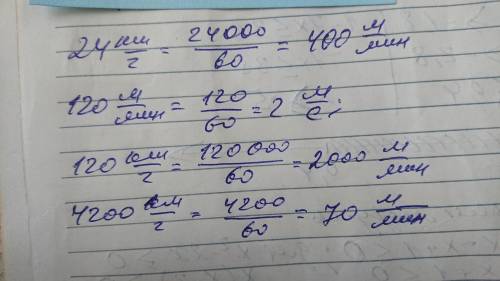 24 км/ч = 24000/60 = 400 м/мин
120 м/мин = 120/60 = 2 м/с;
120 км/ч = 120 000/60 = 2000 м/мин
4200 км/ч = 4200/60 = 70 м/мин